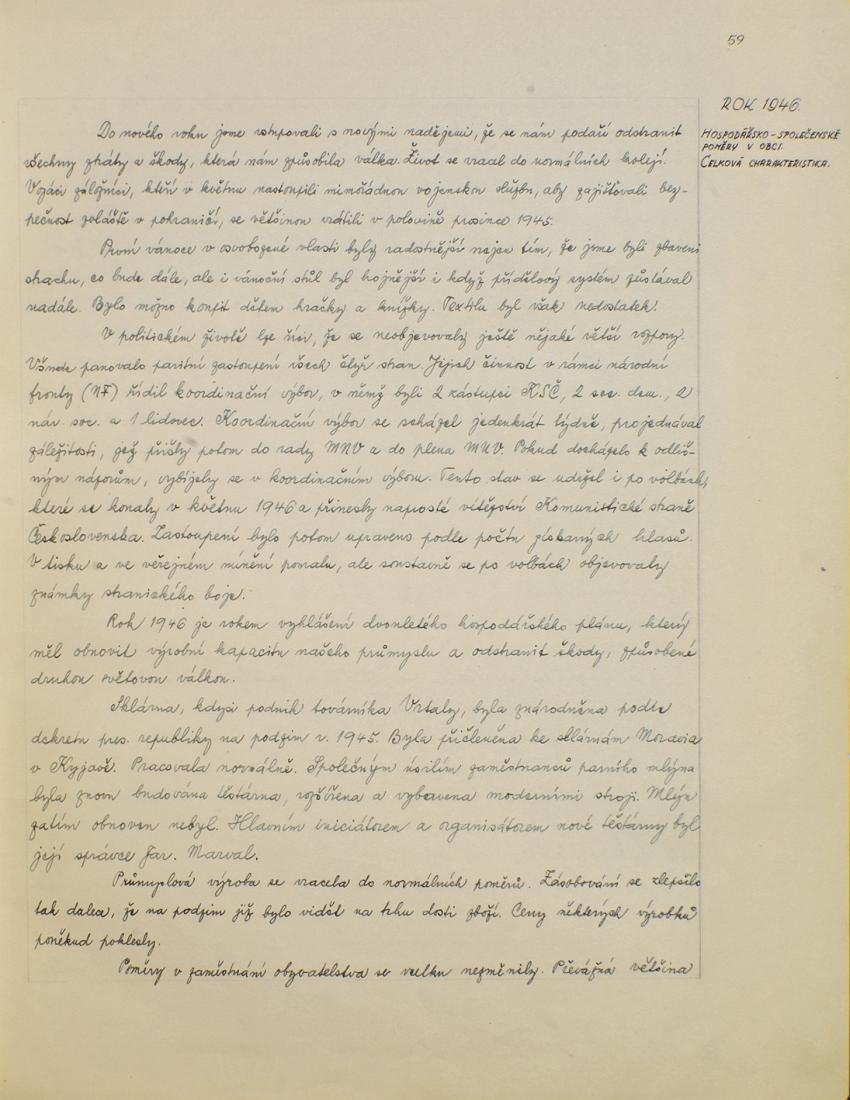 59
ROK 1946.
HOSPODÁŘSKO-SPOLEČENSKÉ
POMĚRY V OBCI.
CELKOVÁ CHARAKTERISTIKA.
Do nového roku jsme vstupovali s novými nadějemi, že se nám podaří odstranit
všechny ztráty a škody, která nám způsobila válka. Život se vracel do normálních kolejí.
Vojáci záložníci, kteří v květnu nastoupili mimořádnou vojenskou službu, aby zajišťovali bez-
pečnost zvláště v pohraničí, se většinou vrátili v polovině prosince 1945.
První vánoce v osvobozené vlasti byly radostnější nejen tím, že jsme byli zbaveni
strachu, co bude dále, ale i vánoční stůl byl hojnější i když přídělový systém zůstával
nadále. Bylo možno koupit dětem hračky a knížky. Textilu byl však nedostatek.
V politickém životě lze říci, že se neobjevovaly ještě nějaké větší rozpory.
Všude panovalo paritní zastoupení všech čtyř stran. Jejich činnost v rámci národní
fronty (NF) řídil koordinační výbor, v němž byli 2 zástupci KSČ, 2 soc. dem., 2
nár. soc. a 1 lidovec. Koordinační výbor se scházel jedenkrát týdně, projednával
záležitosti, jež přišly potom do rady MNV a do plena MNV. Pokud docházelo k odliš-
ným názorům, vybíjely se v koordinačním výboru. Tento stav se udržel i po volbách,
které se konaly v květnu 1946 a přinesly naprosté vítězství Komunistické straně
Československa. Zastoupení bylo potom upraveno podle počtu získaných hlasů.
V tisku a ve veřejném mínění pomalu, ale soustavně se po volbách objevovaly
známky stranického boje.
Rok 1946 je rokem vyhlášení dvouletého hospodářského plánu, který
měl obnovit výrobní kapacitu našeho průmyslu a odstranit škody, způsobené
druhou světovou válkou.
Sklárna, kdysi podnik továrníka Vrtaly, byla znárodněna podle
dekretu pres. republiky na podzim r. 1945. Byla přičleněna ke sklárnám Moravia
v Kyjově. Pracovala normálně. Společným úsilím zaměstnanců parního mlýna
byla znovu budována těstárna, rozšířena a vybavena moderními stroji. Mlýn
zatím obnoven nebyl. Hlavním iniciátorem a organisátorem nové těstárny byl
její správce Jar. Marval.
Průmyslová výroba se vracela do normálních poměrů. Zásobování se zlepšilo
tak dalece, že na podzim již bylo vidět na trhu dosti zboží. Ceny některých výrobků
poněkud poklesly.
Poměry v zaměstnání obyvatelstva se vcelku nezměnily. Převážná většina